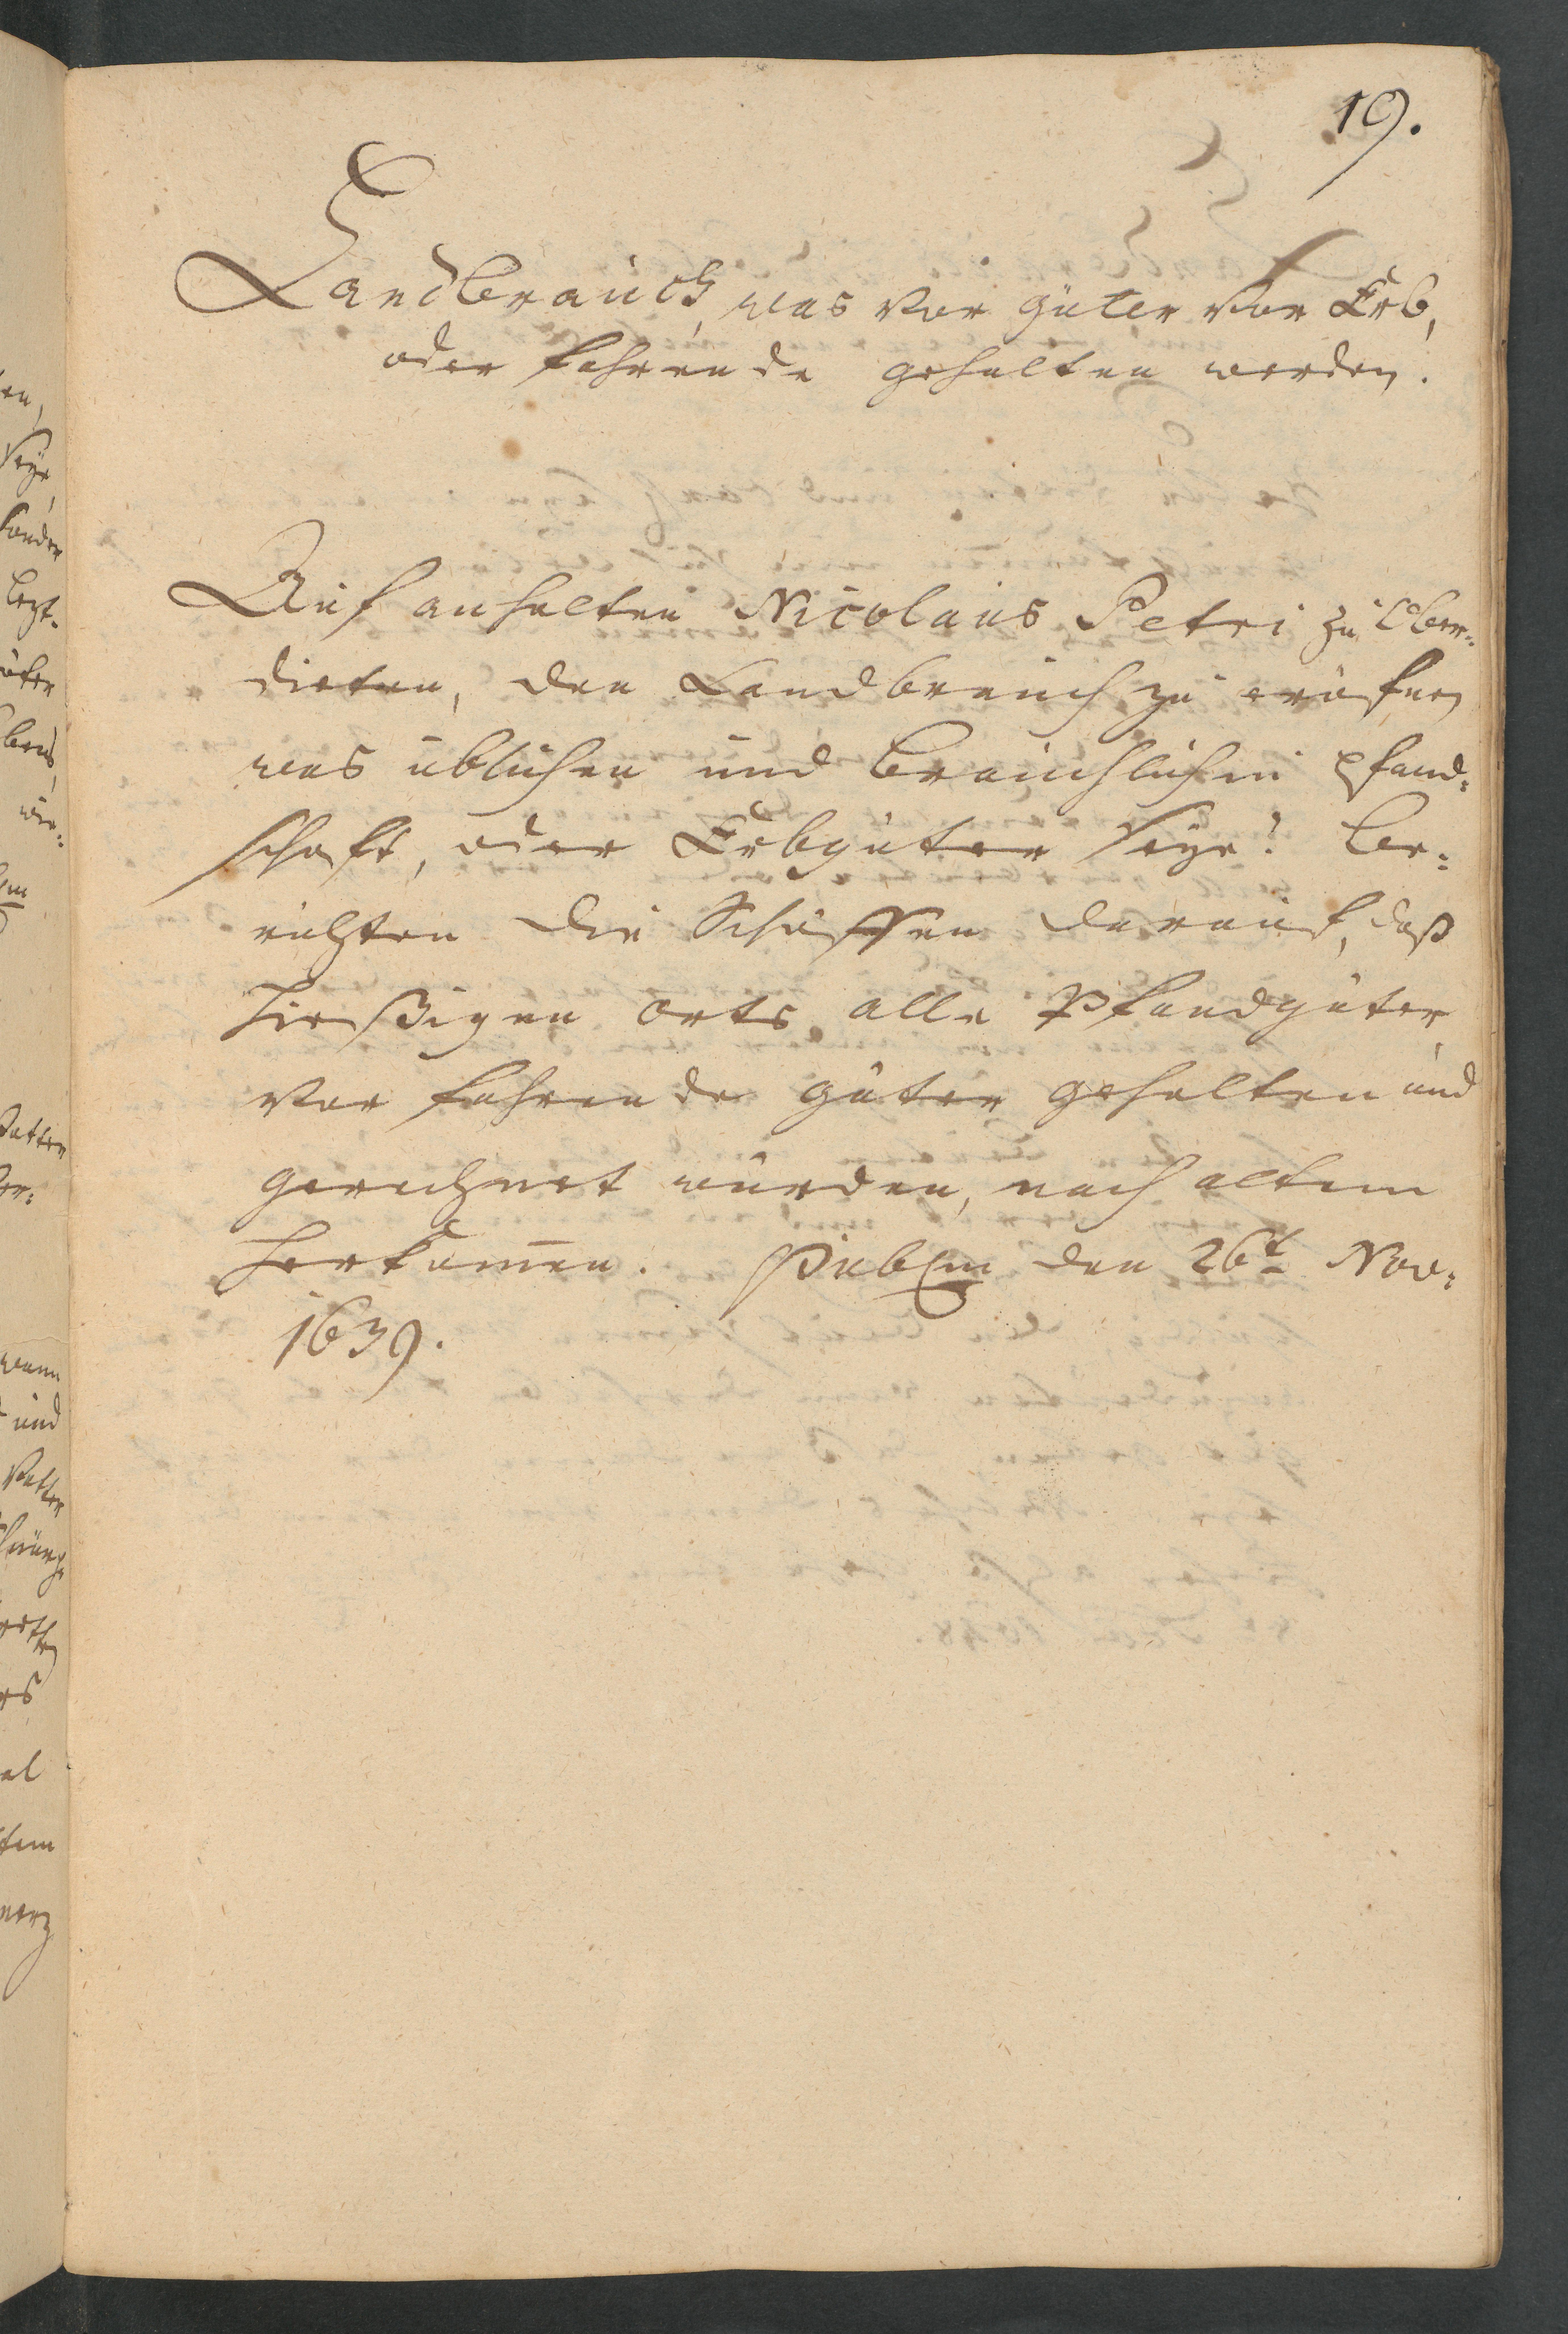 19.
Landbrauch, was vor güter vor Erb,
oder fahrende gehalten werden.
Auf anhalten Nicolaus Petri zu Ober-
dieten, den Landbrauch zu eröfnen
was üblichen und bräuchlichen pfand-
schaft, oder Erbgüter seye? be-
richten die Schöffen darauf, daß
hießigen orts alle Pfandgüter
vor fahrende güter gehalten und
gerechnet würden, nach altem
herkommen. Publm den 26t Nov:
1639.